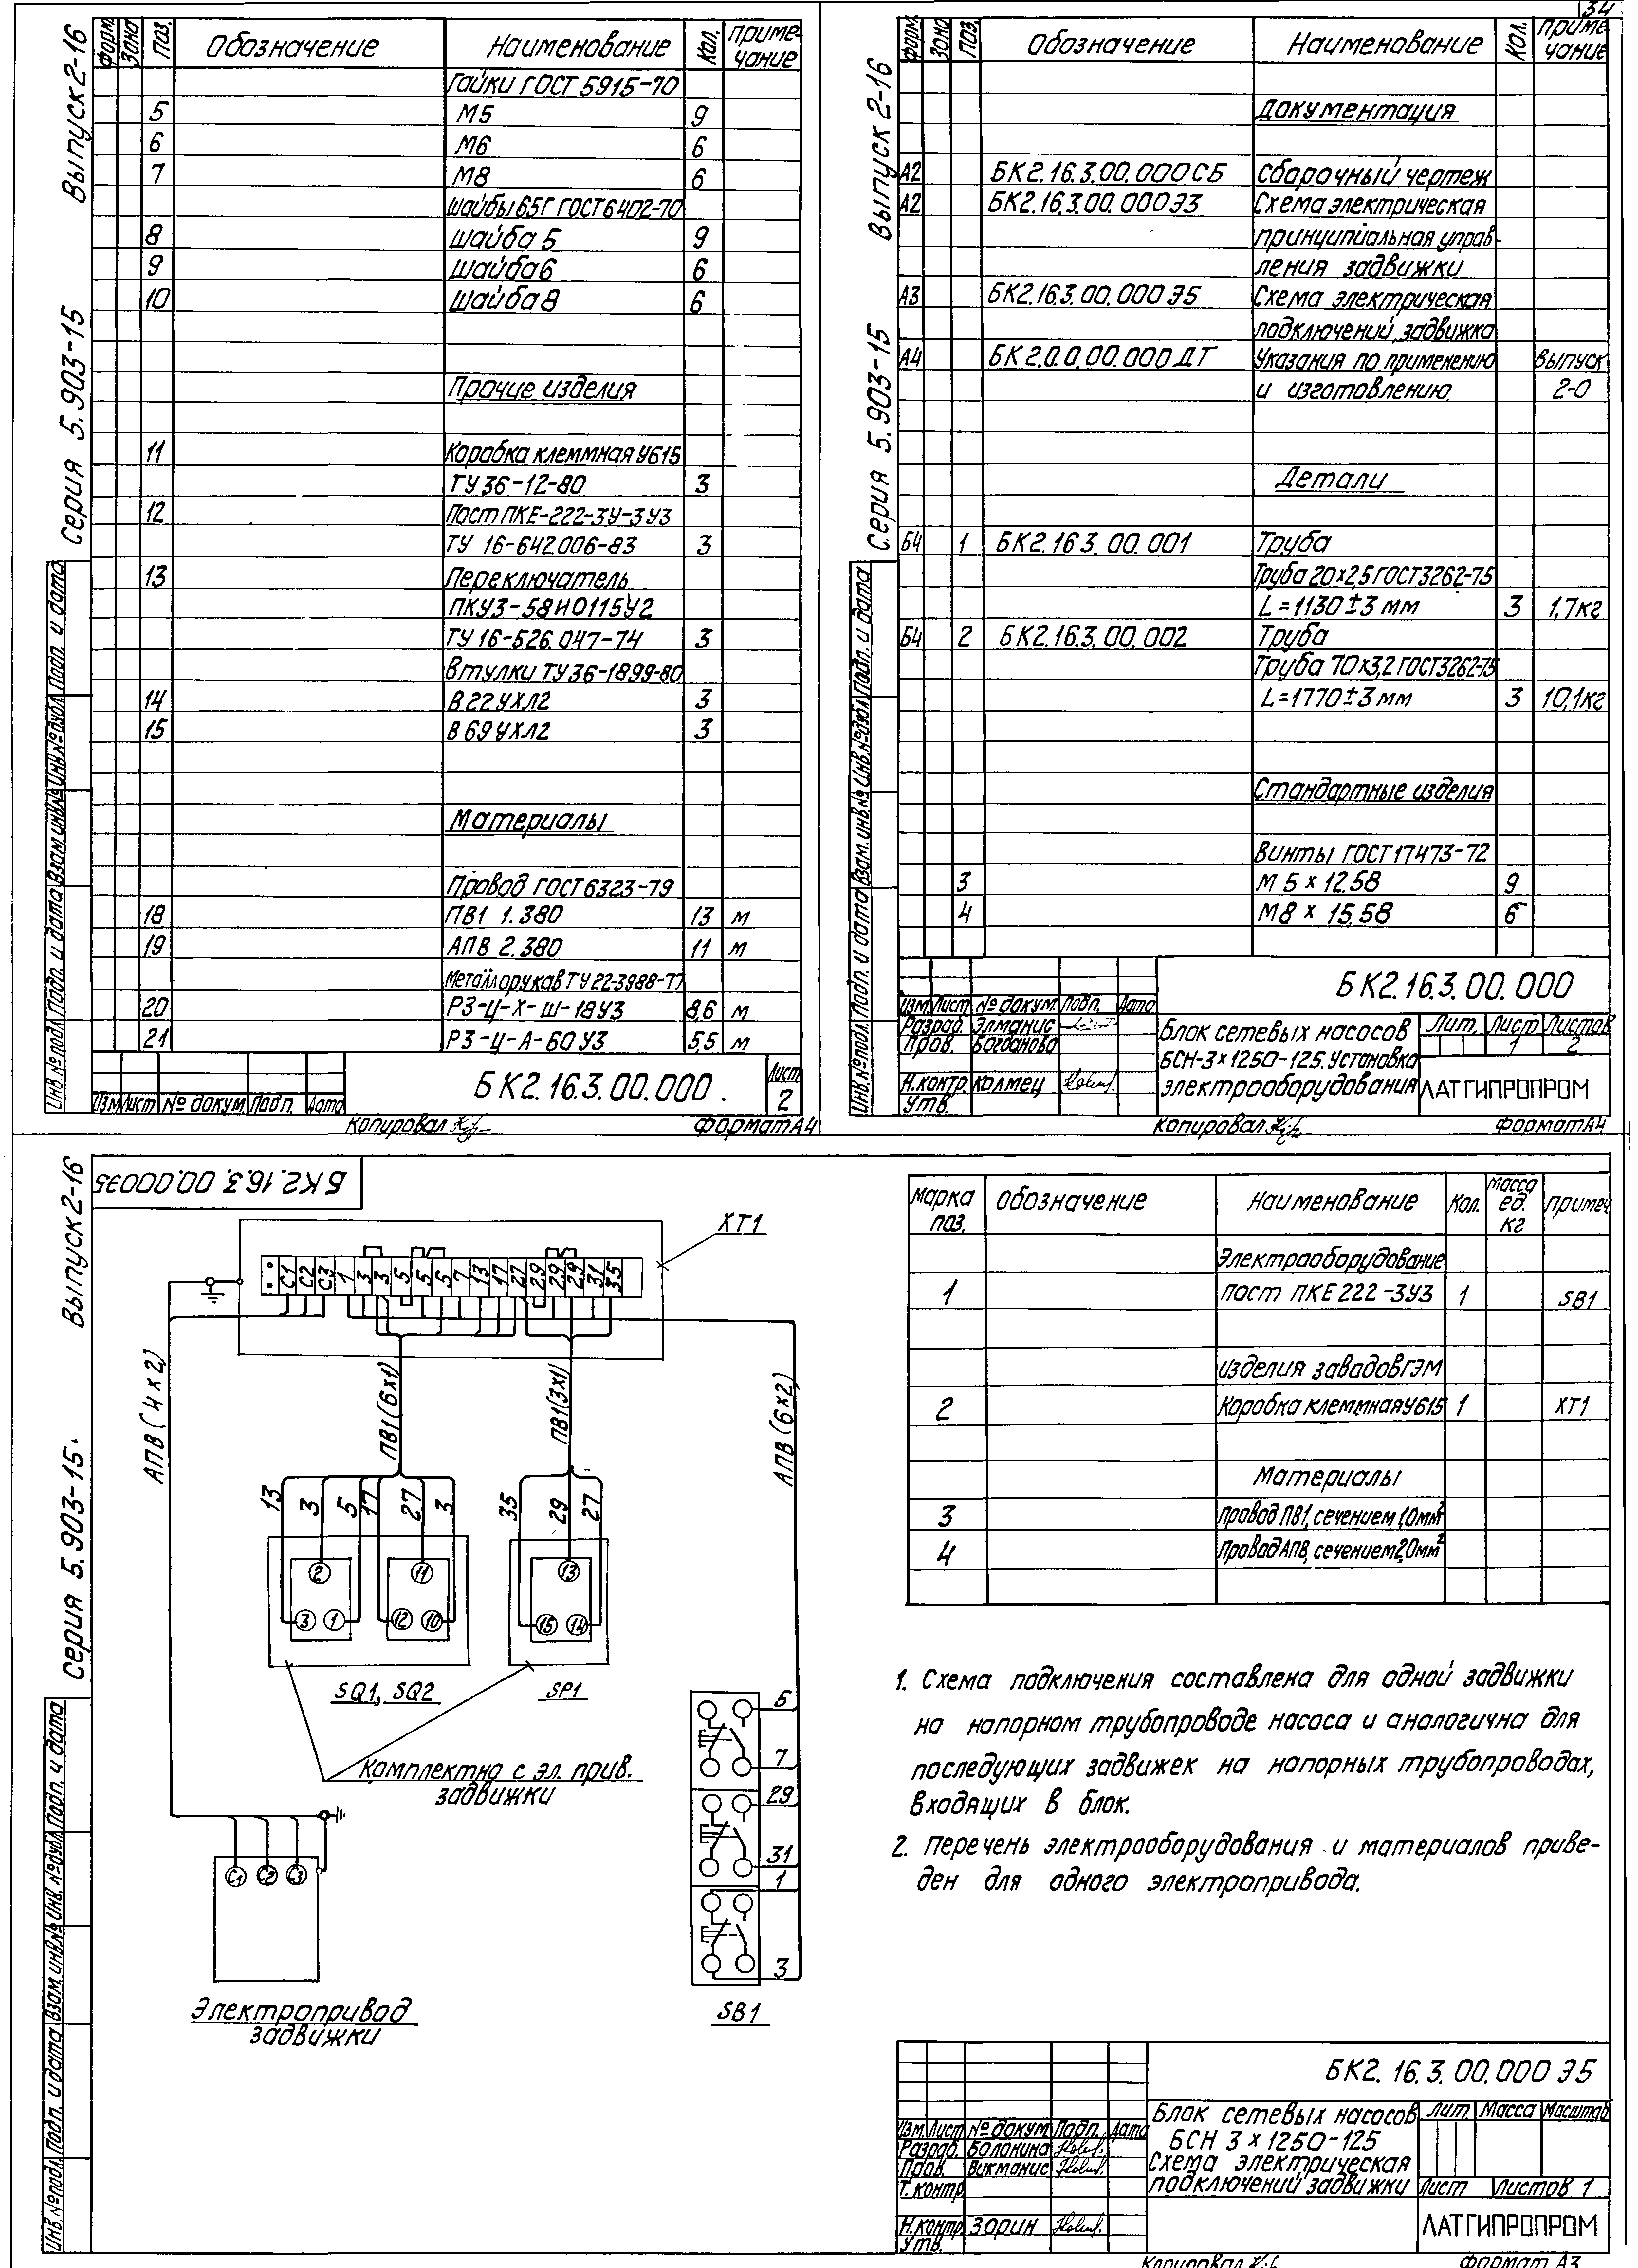 34
Выпуск 2-16
Серия 5.903-15
Форм. Зона Поз. Обозначение Наименование Кол. Примечание
Гайки ГОСТ 5915-70
5 М5 9
6 М6 6
7 М8 6
Шайбы 65Г ГОСТ 6402-70
8 Шайба 5 9
9 Шайба 6 6
10 Шайба 8 6
Прочие изделия
11 Коробка клеммная У615
ТУ 36-12-80 3
12 Пост ПКЕ-222-3У-3У3
ТУ 16-642.006-83 3
13 Переключатель
ПКУ3-58И0115У2
ТУ 16-526.047-74 3
Втулки ТУ 36-1899-80
14 В22УХЛ2 3
15 В69УХЛ2 3
Материалы
Провод ГОСТ 6323-79
18 ПВ1 1.380 13 м
19 АПВ 2.380 11 м
Металлорукав ТУ 22-3988-77
20 РЗ-Ц-Х-Ш-18У3 8,6 м
21 РЗ-Ц-А-60У3 5,5 м
Инв.№ подл. Подп. и дата Взам.инв.№ Инв.№ дубл. Подп. и дата
Изм Лист № докум. Подп. Дата
БК2.16.3.00.000
Лист
2
Копировал
Формат А4
Выпуск 2-16
Серия 5.903-15
Форм. Зона Поз. Обозначение Наименование Кол. Примечание
Документация
А2 БК2.16.3.00.000СБ Сборочный чертеж
А2 БК2.16.3.00.000Э3 Схема электрическая
принципиальная управ-
ления задвижки
А3 БК2.16.3.00.000Э5 Схема электрическая
подключений, задвижка
А4 БК2.0.0.00.000ДТ Указания по применению Выпуск
и изготовлению. 2-0
Детали
Б4 1 БК2.16.3.00.001 Труба
Труба 20х2,5 ГОСТ 3262-75
L=1130±3 мм 3 1,7кг
Б4 2 БК2.16.3.00.002 Труба
Труба 70х3,2 ГОСТ 3262-75
L=1770±3 мм 3 10,1кг
Стандартные изделия
Винты ГОСТ 17473-72
3 М5 х 12.58 9
4 М8 х 15.58 6
Инв.№ подл. Подп. и дата Взам.инв.№ Инв.№ дубл. Подп. и дата
БК2.16.3.00.000
Изм. Лист № докум. Подп. Дата
Разраб. Элманис
Пров. Богданова
Н.контр. Колмец
Утв.
Блок сетевых насосов
БСН-3х1250-125. Установка
электрооборудования
Лит. Лист Листов
1 2
ЛАТГИПРОПРОМ
Копировал
Формат А4
Выпуск 2-16
Серия 5.903-15.
БК2.16.3.00.000Э5
ХТ1
С1 С2 С3 1 3 3 5 5 5 7 13 17 27 29 29 29 31 35
АПВ (4х2)
ПВ1 (6х1)
ПВ1 (3х1)
АПВ (6х2)
13 3 5 17 27 3
35 29 27
2 11 13
3 1 12 10 15 14
SQ1, SQ2
SP1
Комплектно с эл. прив.
задвижки
С1 С2 С3
Электропривод
задвижки
5
7
29
31
1
3
SB1
Марка поз. Обозначение Наименование Кол. Масса ед. кг Примеч.
Электрооборудование
1 Пост ПКЕ 222-3У3 1 SB1
Изделия заводов ГЭМ
2 Коробка клеммная У615 1 ХТ1
Материалы
3 Провод ПВ1, сечением 1,0мм²
4 Провод АПВ, сечением 2,0мм²
1. Схема подключения составлена для одной задвижки
на напорном трубопроводе насоса и аналогична для
последующих задвижек на напорных трубопроводах,
входящих в блок.
2. Перечень электрооборудования и материалов приве-
ден для одного электропривода.
Инв.№ подл. Подп. и дата Взам.инв.№ Инв.№ дубл. Подп. и дата
БК2.16.3.00.000 Э5
Изм. Лист № докум. Подп. Дата
Разраб. Болонина
Пров. Викманис
Т.контр.
Н.контр. Зорин
Утв.
Блок сетевых насосов
БСН 3х1250-125
Схема электрическая
подключений задвижки
Лит. Масса Масштаб
Лист Листов 1
ЛАТГИПРОПРОМ
Копировал
Формат А3